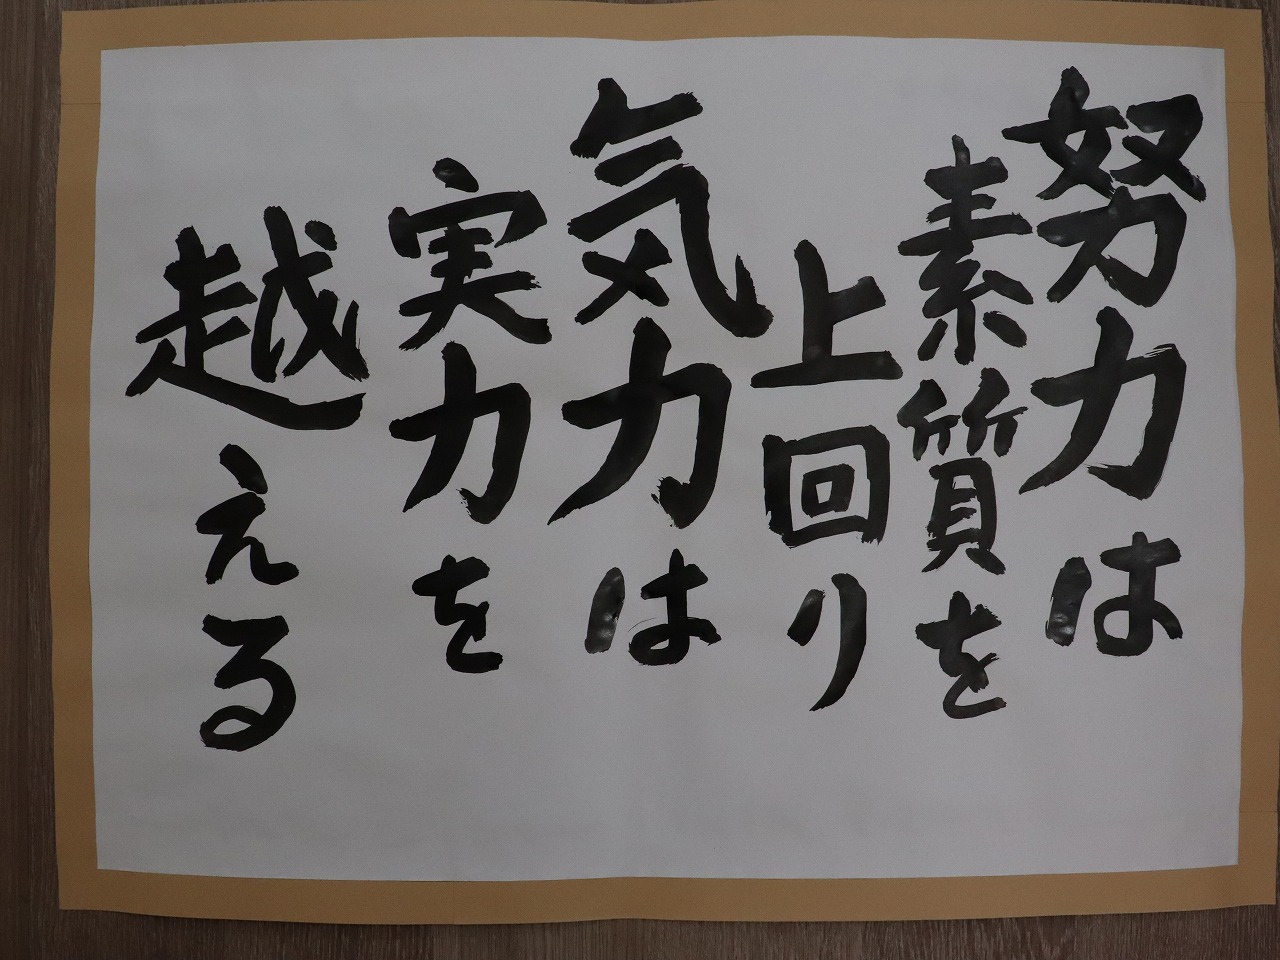 努力は
素質を
上回り
気力は
実力を
越える